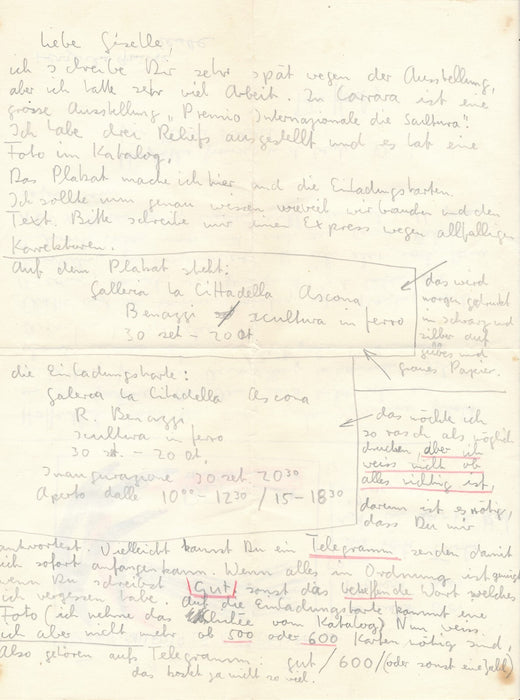 Liebe Giselle,
ich schreibe Dir sehr spät wegen der Ausstellung,
aber ich hatte sehr viel Arbeit. In Carrara ist eine
grosse Ausstellung „Premio Internazionale die Scultura".
Ich habe drei Reliefs ausgestellt und es hat eine
Foto im Katalog.
Das Plakat mache ich hier und die Einladungskarten.
Ich sollte nun genau wissen wieviel wir brauchen und den
Text. Bitte schreibe mir einen Express wegen allfälligen
Korrekturen.
Auf dem Plakat steht:
Galleria La Cittadella Ascona
Benazzi scultura in ferro
30 set - 20 Ot.
das wird
morgen gedruckt
in schwarz und
silber auf
und
graues Papier.
die Einladungskarte:
Galeria La Citadella Ascona
R. Benazzi
scultura in ferro
30 st. - 20 Ot.
Inaugurazione 30 set. 20 30
Aperto dalle 10 00 - 12 30 / 15 - 18 30
das möchte ich
so rasch als möglich
drucken, aber ich
weiss nicht ob
alles richtig ist,
darum ist es nötig,
dass Du mir
antwortest. Vielleicht kannst Du ein Telegramm senden damit
ich sofort anfangen kann. Wenn alles in Ordnung ist
wenn Du schreibst Gut sonst das betreffende Wort welches
ich vergessen habe. Auf die Einladungskarte kommt eine
Foto (ich nehme das vom Katalog) Nun weiss
ich aber nicht mehr, ob 500 oder 600 Karten nötig sind,
Also, gehören aufs Telegramm: gut / 600 / (oder sonst eine Zahl)
das kostet ja nicht so viel.